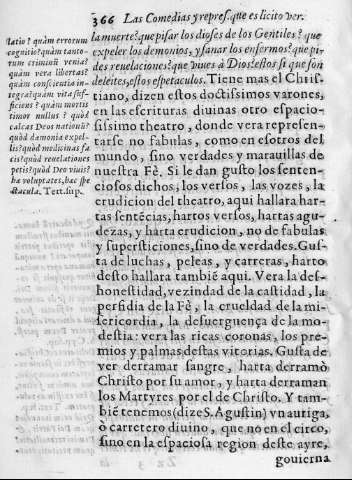 366 Las Comedias y repres. que es licito ver.
latio? quàm errorum
cognitio? quàm tanto-
rum criminū venia?
quàm vera libertas?
quàm conscientia in-
tegra? quàm vita suf-
ficiens? quàm mortis
timor nullus? quòd
calcas Deos nationū?
quòd dæmonia expel-
lis? quòd medicinas fa-
cis? quòd reuelationes
petis? quòd Deo viuis?
hæ voluptates, hæc spe
ctacula. Tert. sup.
la muerte? que pisar los dioses de los Gentiles? que
expeler los demonios, y sanar los enfermos? que pi-
des reuelaciones? que viues à Dios? estos si que son
deleites, estos espetaculos. Tiene mas el Chris-
tiano, dizen estos doctissimos varones,
en las escrituras diuinas otro espacio-
sissimo theatro, donde vera represen-
tarse no fabulas, como en esotros del
mundo, sino verdades y marauillas de
nuestra Fè. Si le dan gusto los senten-
ciosos dichos, los versos, las vozes, la
erudicion del theatro, aqui hallara har-
tas sentēcias, hartos versos, hartas agu-
dezas, y harta erudicion, no de fabulas
y supersticiones, sino de verdades. Gus-
ta de luchas, peleas, y carreras, harto
desto hallara tambiē aqui. Vera la des-
honestidad, vezindad de la castidad, la
perfidia de la Fè, la crueldad de la mi-
sericordia, la desuerguença de la mo-
destia: vera las ricas coronas, los pre-
mios y palmas destas vitorias. Gusta de
ver derramar sangre, harta derramò
Christo por su amor, y harta derraman
los Martyres por el de Christo. Y tam-
biē tenemos (dize S. Agustin) vn auriga,
ò carretero diuino, que no en el circo,
sino en la espaciosa region deste ayre,
gouierna